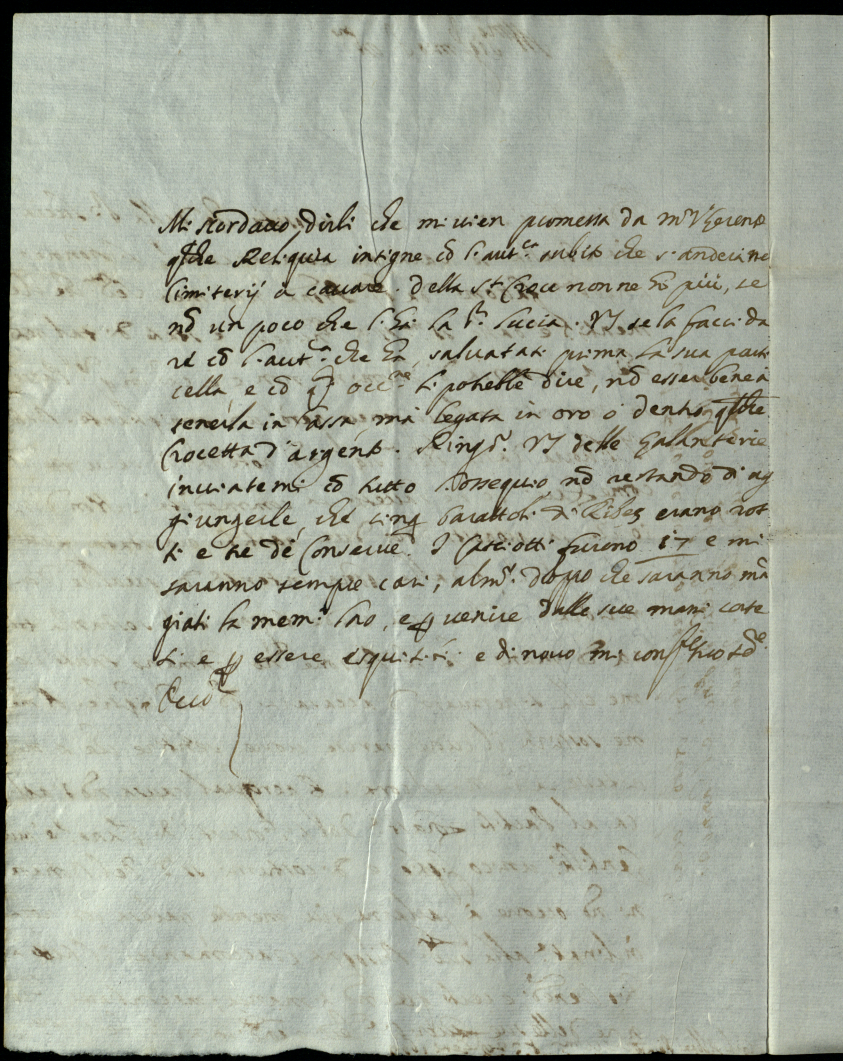 Mi scordavo dirli che mi vien promessa da mr Vicerente
qche Reliquia insigne cõ l'autca subito che s'anderà ne
Cimiterij à cavare. Della Sta Croce non ne hò più, se
nõ un poco che l'hà la Sra Lucia. VS se la facci da
re cõ l'autca che hà, salvatasi prima la sua parti
cella, e cõ qta occne li potrebbe dire, nõ esser bene à
tenerla in cassa, mà legata in oro ò dentro qche
Crocetta d'argento. Ringo. VS delle galanterie
inviatemi cõ tutto l'ossequio nõ restando di ag
giungerle, che cinq barattoli di Ribes erano rot
ti e tre de Conserve. I Casciotti furono 17 e mi
saranno sempre cari, almo. dopo che saranno mã
giati la mema loro, e per venire dalle sue mani corte
si e per essere esquisiti e di novo mi confermo